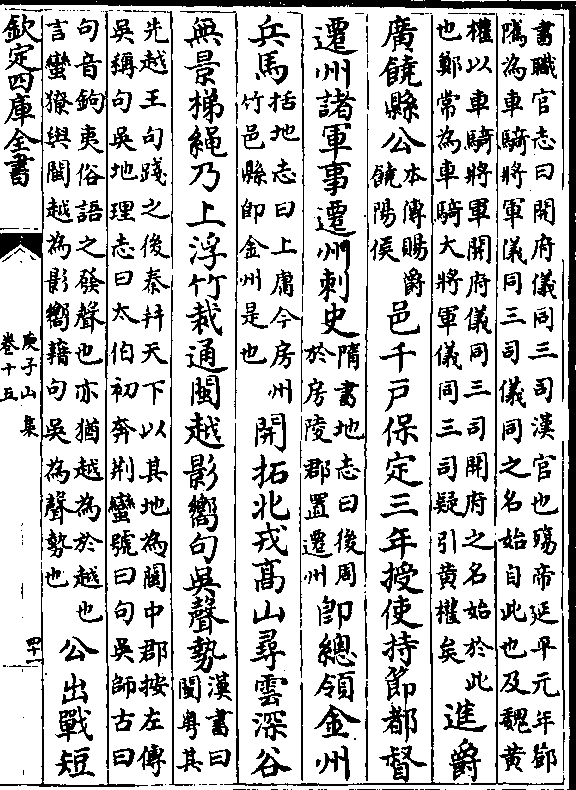 書職官志曰開府儀同三司漢官也殤帝延平元年鄧
隲為車騎將軍儀同三司儀同之名始自此也及魏黄
權以車騎將軍開府儀同三司開府之名始於此
也鄭常為車騎大將軍儀同三司疑引黄權矣
進爵
廣饒縣公
本傳賜爵
饒陽侯
邑千戸保定三年授使持節都督
遷州諸軍事遷州刺史
隋書地志曰後周
於房陵郡置遷州
即總領金州
兵馬
括地志曰上庸今房州
竹邑縣即金州是也
開拓北戎髙山尋雲深谷
無景梯繩乃上浮竹栽通閩越影嚮句吳聲勢
漢書曰
閩粵其
先越王句踐之後秦并天下以其地為閩中郡按左傳
吳稱句吳地理志曰太伯初奔荆蠻號曰句吳師古曰
句音鉤夷俗語之發聲也亦猶越為於越也
言蠻獠與閩越為影嚮藉句吳為聲勢也
公出戰短
欽定四庫全書
庾子山集
卷十五
四十一